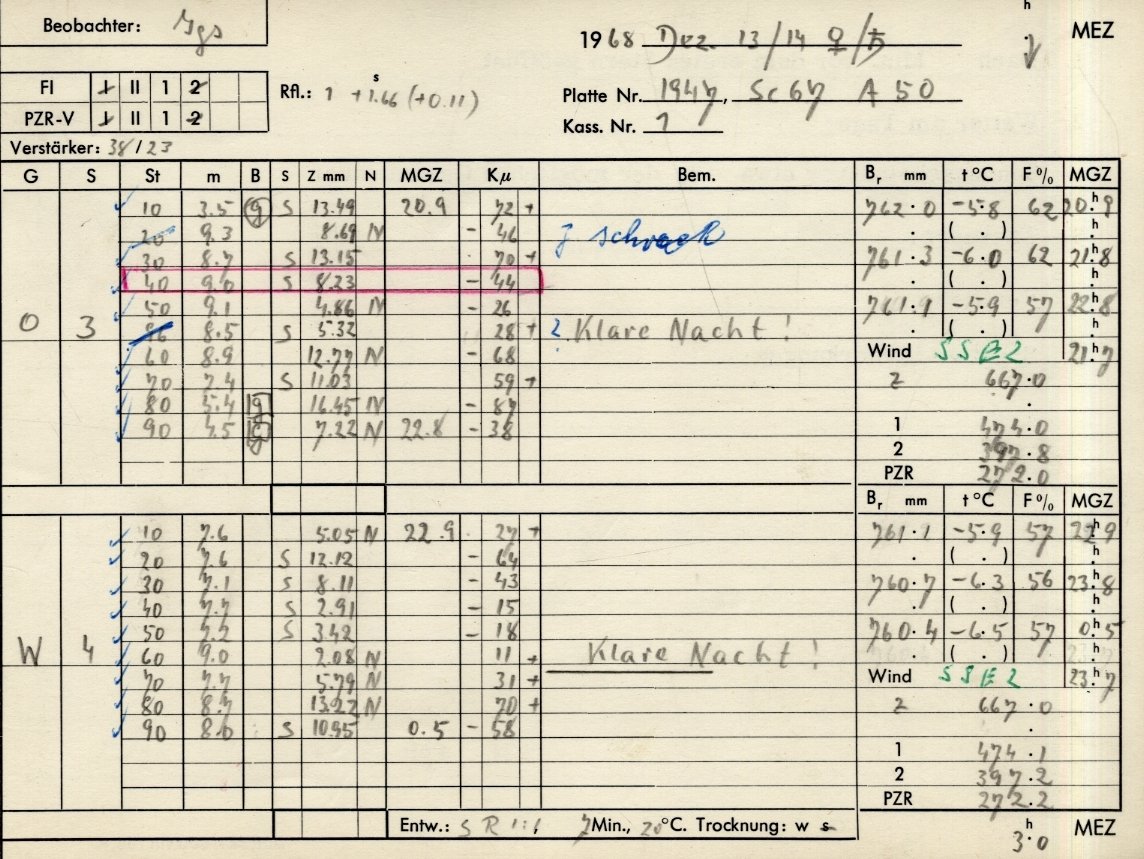 Beobachter: Jgs
1968 Dez. 13/14 ♀/♄
h
MEZ
FI I II 1 2
PZR-V I II 1 2
Rfl.: 1 +1.66 s (+0.11)
Platte Nr. 1947, Sc 67 A 50
Kass. Nr. 1
Verstärker: 38/23
G S St m B S Z mm N MGZ Kμ Bem. Br mm t °C F % MGZ
10 3.5 g S 13.49 20.9 72 + 762.0 -5.8 62 20.h9
20 9.3 8.69 N - 46 schwach . ( . ) h.
30 8.7 S 13.15 70 + 761.3 -6.0 62 21.h8
40 9.0 S 8.23 - 44 . ( . ) h.
50 9.1 4.86 N - 26 761.1 -5.9 57 22.h8
O 3 8.5 S 5.32 28 + 2. Klare Nacht! . ( . ) h.
60 8.9 12.77 N - 68 Wind SSE2 21.7
70 7.4 S 11.03 59 + Z 667.0
80 5.4 g 16.45 N - 87 .
90 4.5 g 7.22 N 22.8 - 38 1 474.0
2 397.8
PZR 272.0
Br mm t °C F % MGZ
10 7.6 5.05 N 22.9 27 + 761.1 -5.9 57 22.h9
20 7.6 S 12.12 - 64 . ( . ) h.
30 7.1 S 8.11 - 43 760.7 -6.3 56 23.h8
40 7.7 S 2.91 - 15 . ( . ) h.
50 7.2 S 3.42 - 18 760.4 -6.5 57 0.h5
W 4 60 9.0 2.08 N 11 + Klare Nacht! . ( . ) h.
70 7.7 5.79 N 31 + Wind SSE2 23.7
80 8.7 13.22 N 70 + Z 667.0
90 8.0 S 10.95 0.5 - 58 .
1 474.1
2 397.2
PZR 272.2
Entw.: S R 1:1 7 Min., 20 °C. Trocknung: w s
3.h0 MEZ